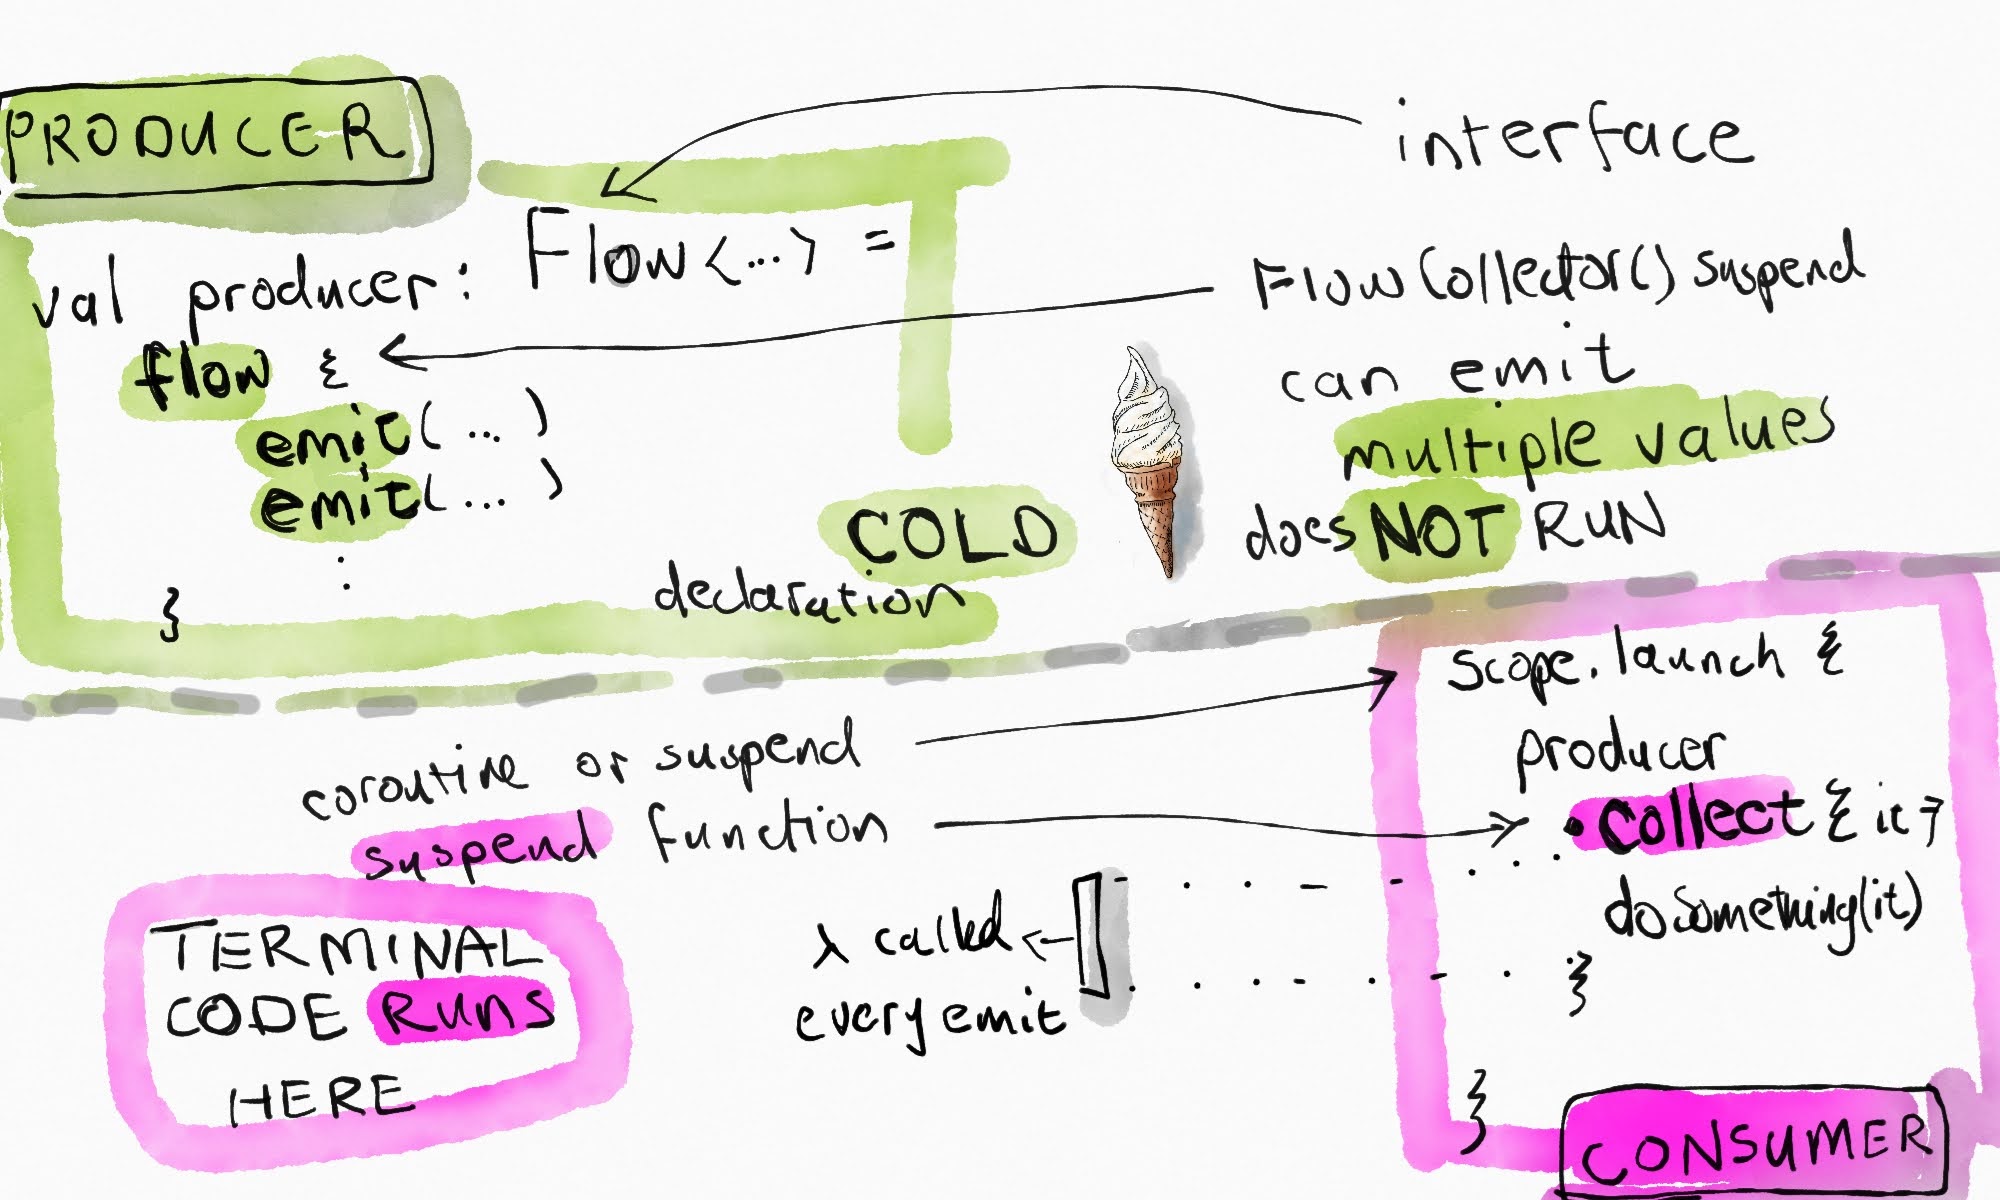 PRODUCER
interface
val producer: Flow<...> =
flow {
emit(...)
emit(...)
:
}
FlowCollector() suspend
can emit
multiple values
does NOT RUN
COLD
declaration
coroutine or suspend
suspend function
TERMINAL
CODE RUNS
HERE
λ called
every emit
scope.launch {
producer
.collect { it →
doSomething(it)
}
}
CONSUMER